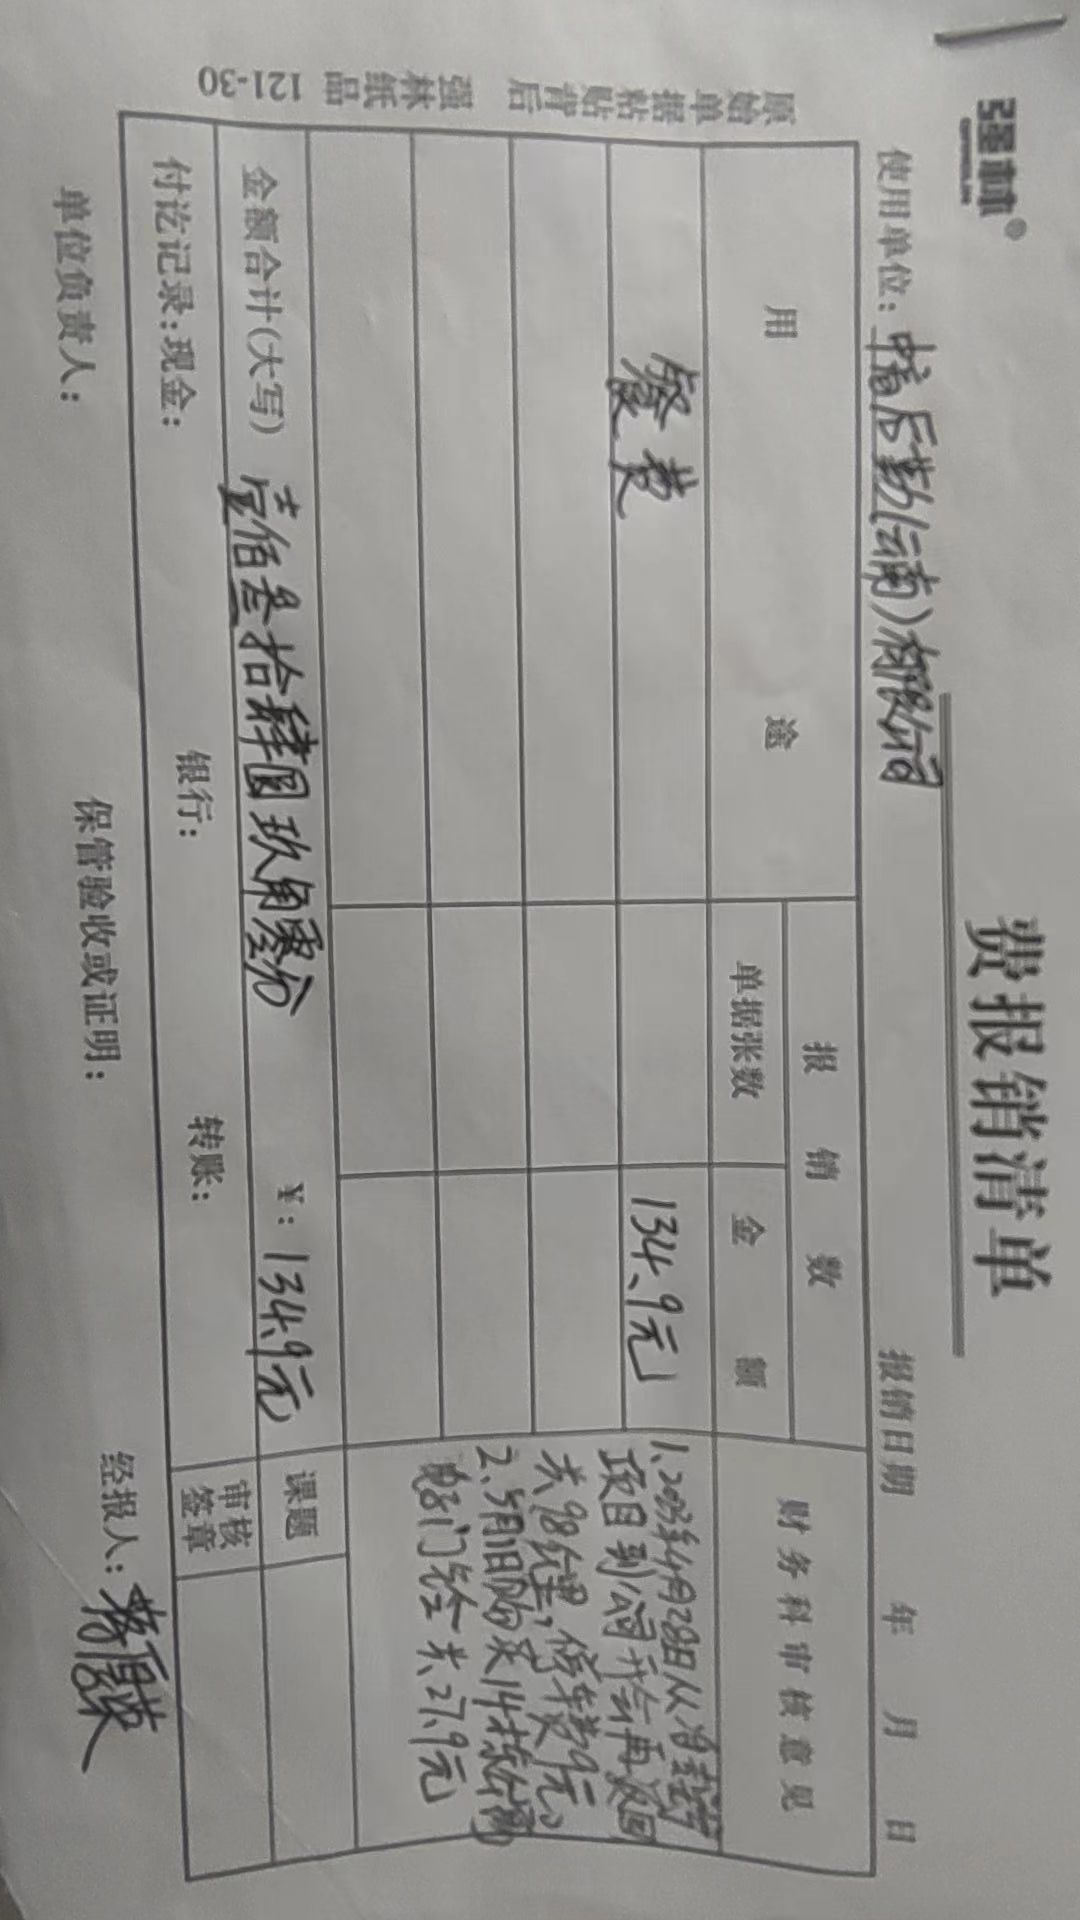 强林®
费报销清单
使用单位：中 后勤（云南）有限公司
报销日期 年 月 日
用 途
报 销 数
财务科审核意见
单据张数
金 额
餐费
134.9元
1、2023年4月28日从
项目到公司开会再返回
共98公里，停车费9元。
2、5月1日购买14栋
门 共27.9元
金额合计(大写) 壹佰叁拾肆圆玖角零分
￥：134.9元
课题
付讫记录：现金：
银行：
转账：
审核签章
单位负责人：
保管验收或证明：
经报人：蒋
原始单据粘贴背后 强林纸品 121-30